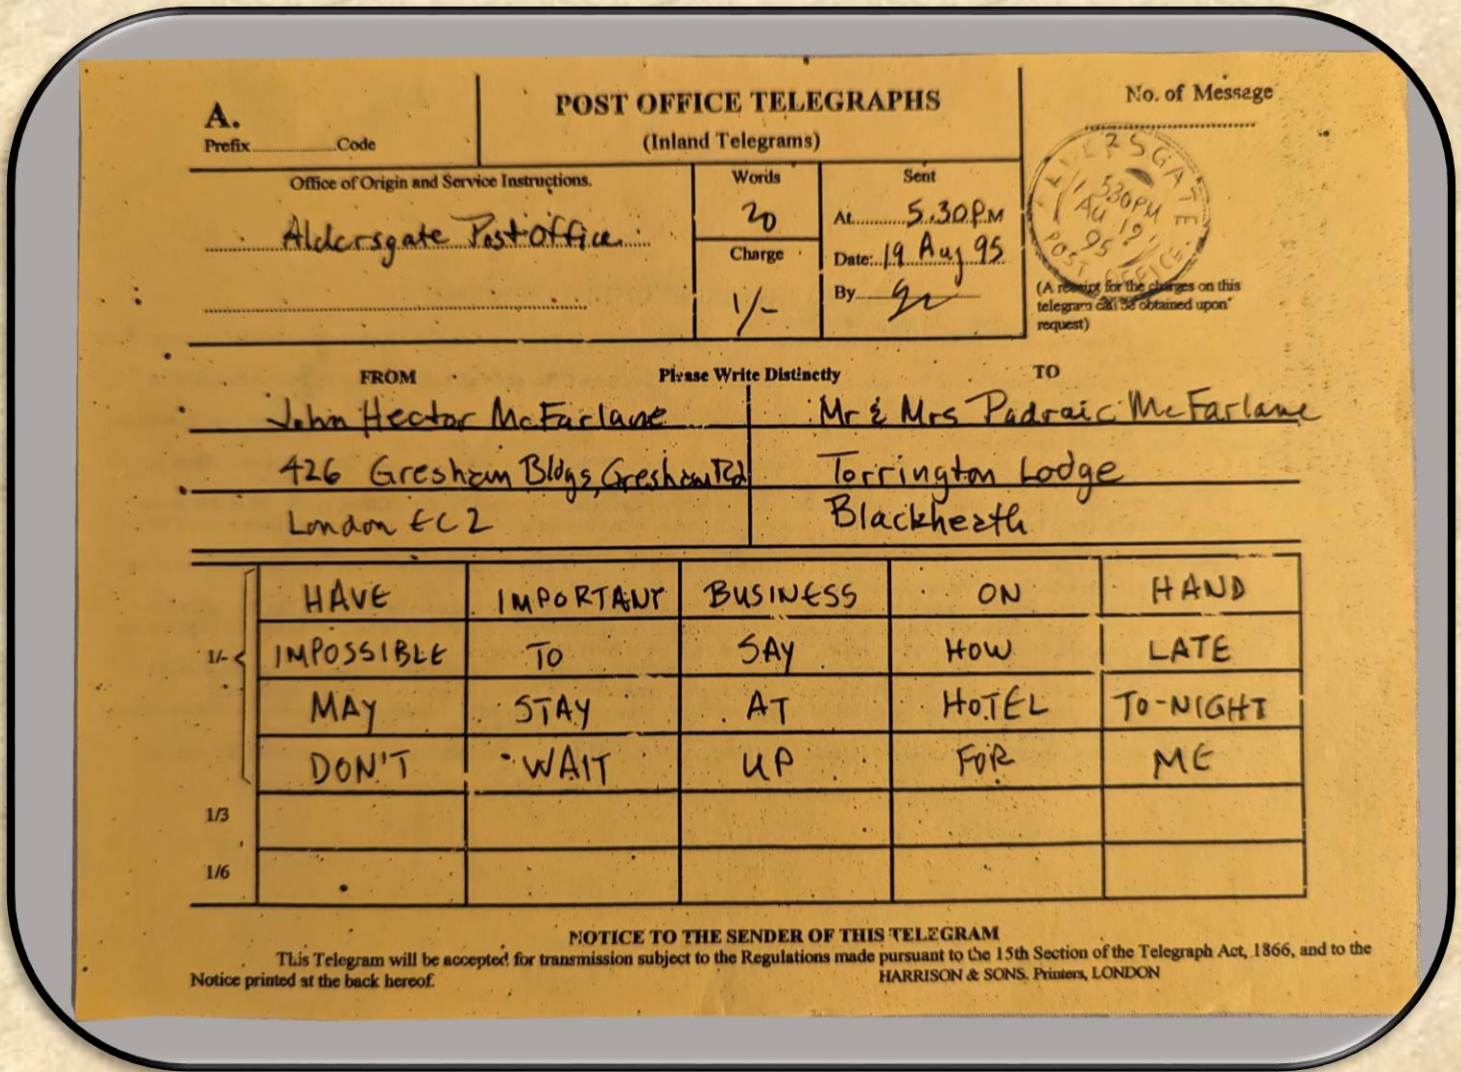 A.
Prefix Code
POST OFFICE TELEGRAPHS
(Inland Telegrams)
No. of Message
Office of Origin and Service Instructions.
Aldersgate Post Office
Words
20
Charge
1/-
Sent
At 5.30PM
Date: 19 Aug 95
By
ALDERSGATE
530PM
AU 19
95
POST OFFICE
(A receipt for the charges on this
telegram can be obtained upon
request)
FROM
Please Write Distinctly
TO
John Hector McFarlane
426 Gresham Bldgs, Gresham Rd
London EC2
Mr & Mrs Padraic McFarlane
Torrington Lodge
Blackheath
HAVE IMPORTANT BUSINESS ON HAND
1/- IMPOSSIBLE TO SAY HOW LATE
MAY STAY AT HOTEL TO-NIGHT
DON'T WAIT UP FOR ME
1/3
1/6
NOTICE TO THE SENDER OF THIS TELEGRAM
This Telegram will be accepted for transmission subject to the Regulations made pursuant to the 15th Section of the Telegraph Act, 1866, and to the
Notice printed at the back hereof.
HARRISON & SONS. Printers, LONDON